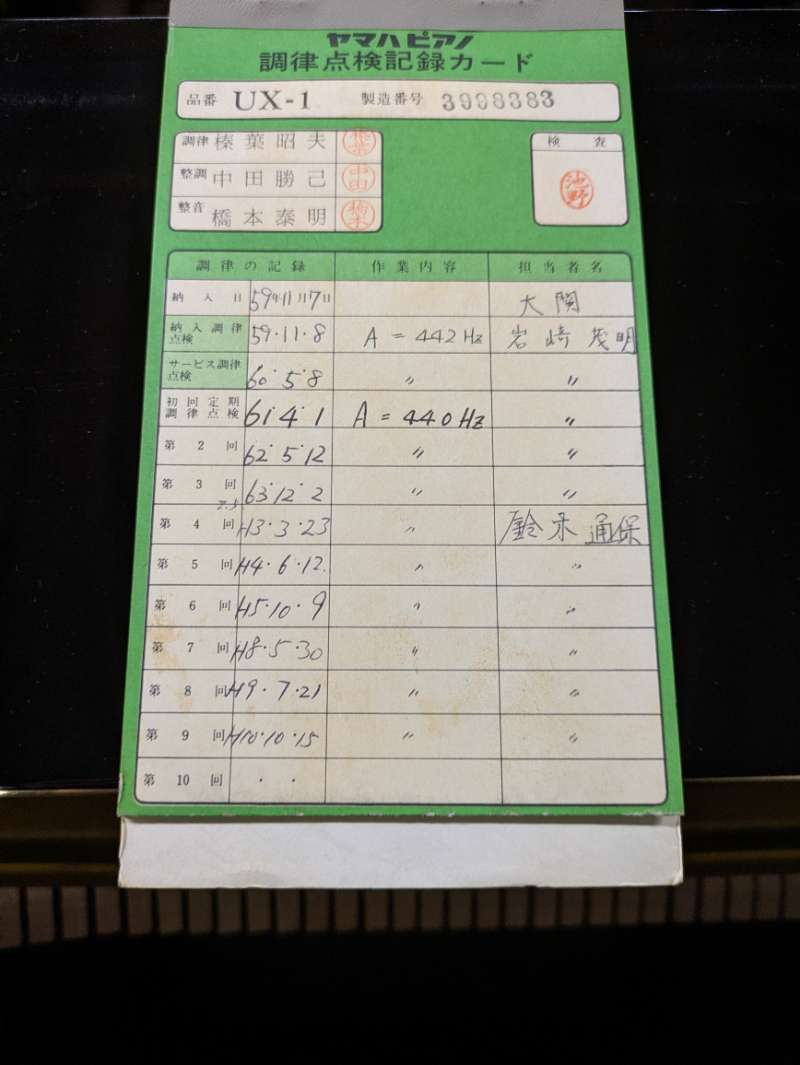 ヤマハピアノ
調律点検記録カード
品番 UX-1 製造番号 3998383
調律 榛葉昭夫 榛葉
整調 中田勝己 中田
整音 橋本泰明 橋本
検査
池野
調律の記録 作業内容 担当者名
納入日 59年11月7日 大関
納入調律点検 59・11・8 A = 442Hz 岩崎茂明
サービス調律点検 60・5・8 〃 〃
初回定期調律点検 61・4・1 A = 440Hz 〃
第2回 62・5・12 〃 〃
第3回 63・12・2 〃 〃
第4回 H3・3・23 〃 鈴木通保
第5回 H4・6・12 〃 〃
第6回 H5・10・9 〃 〃
第7回 H8・5・30 〃 〃
第8回 H9・7・21 〃 〃
第9回 H10・10・15 〃 〃
第10回 ・ ・